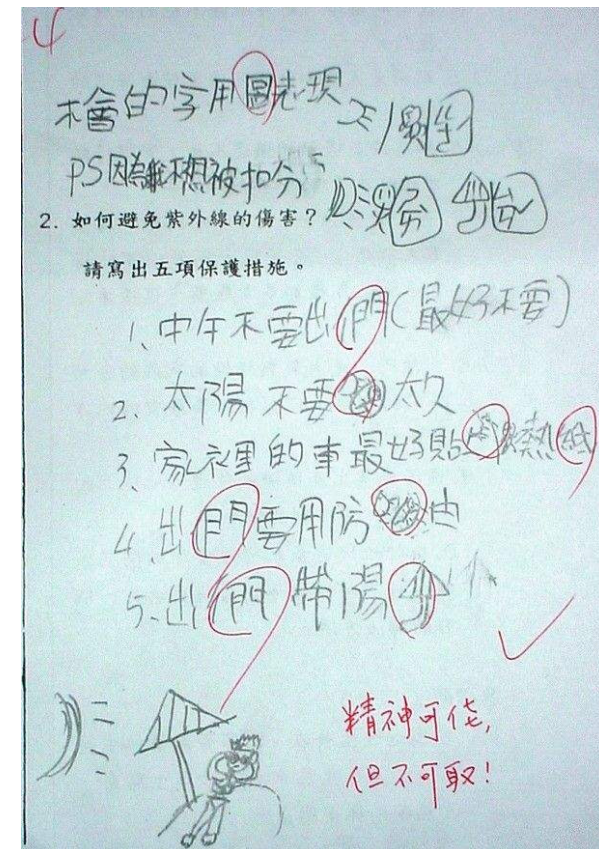 4
木會的字用圖表現
PS因為我不想被扣分
2. 如何避免紫外線的傷害？
請寫出五項保護措施。
1、中午不要出門(最好不要)
2、太陽不要太久
3、家裡的車最好貼熱紙
4、出門要用防油
5、出門帶陽
精神可佳,
但不可取!